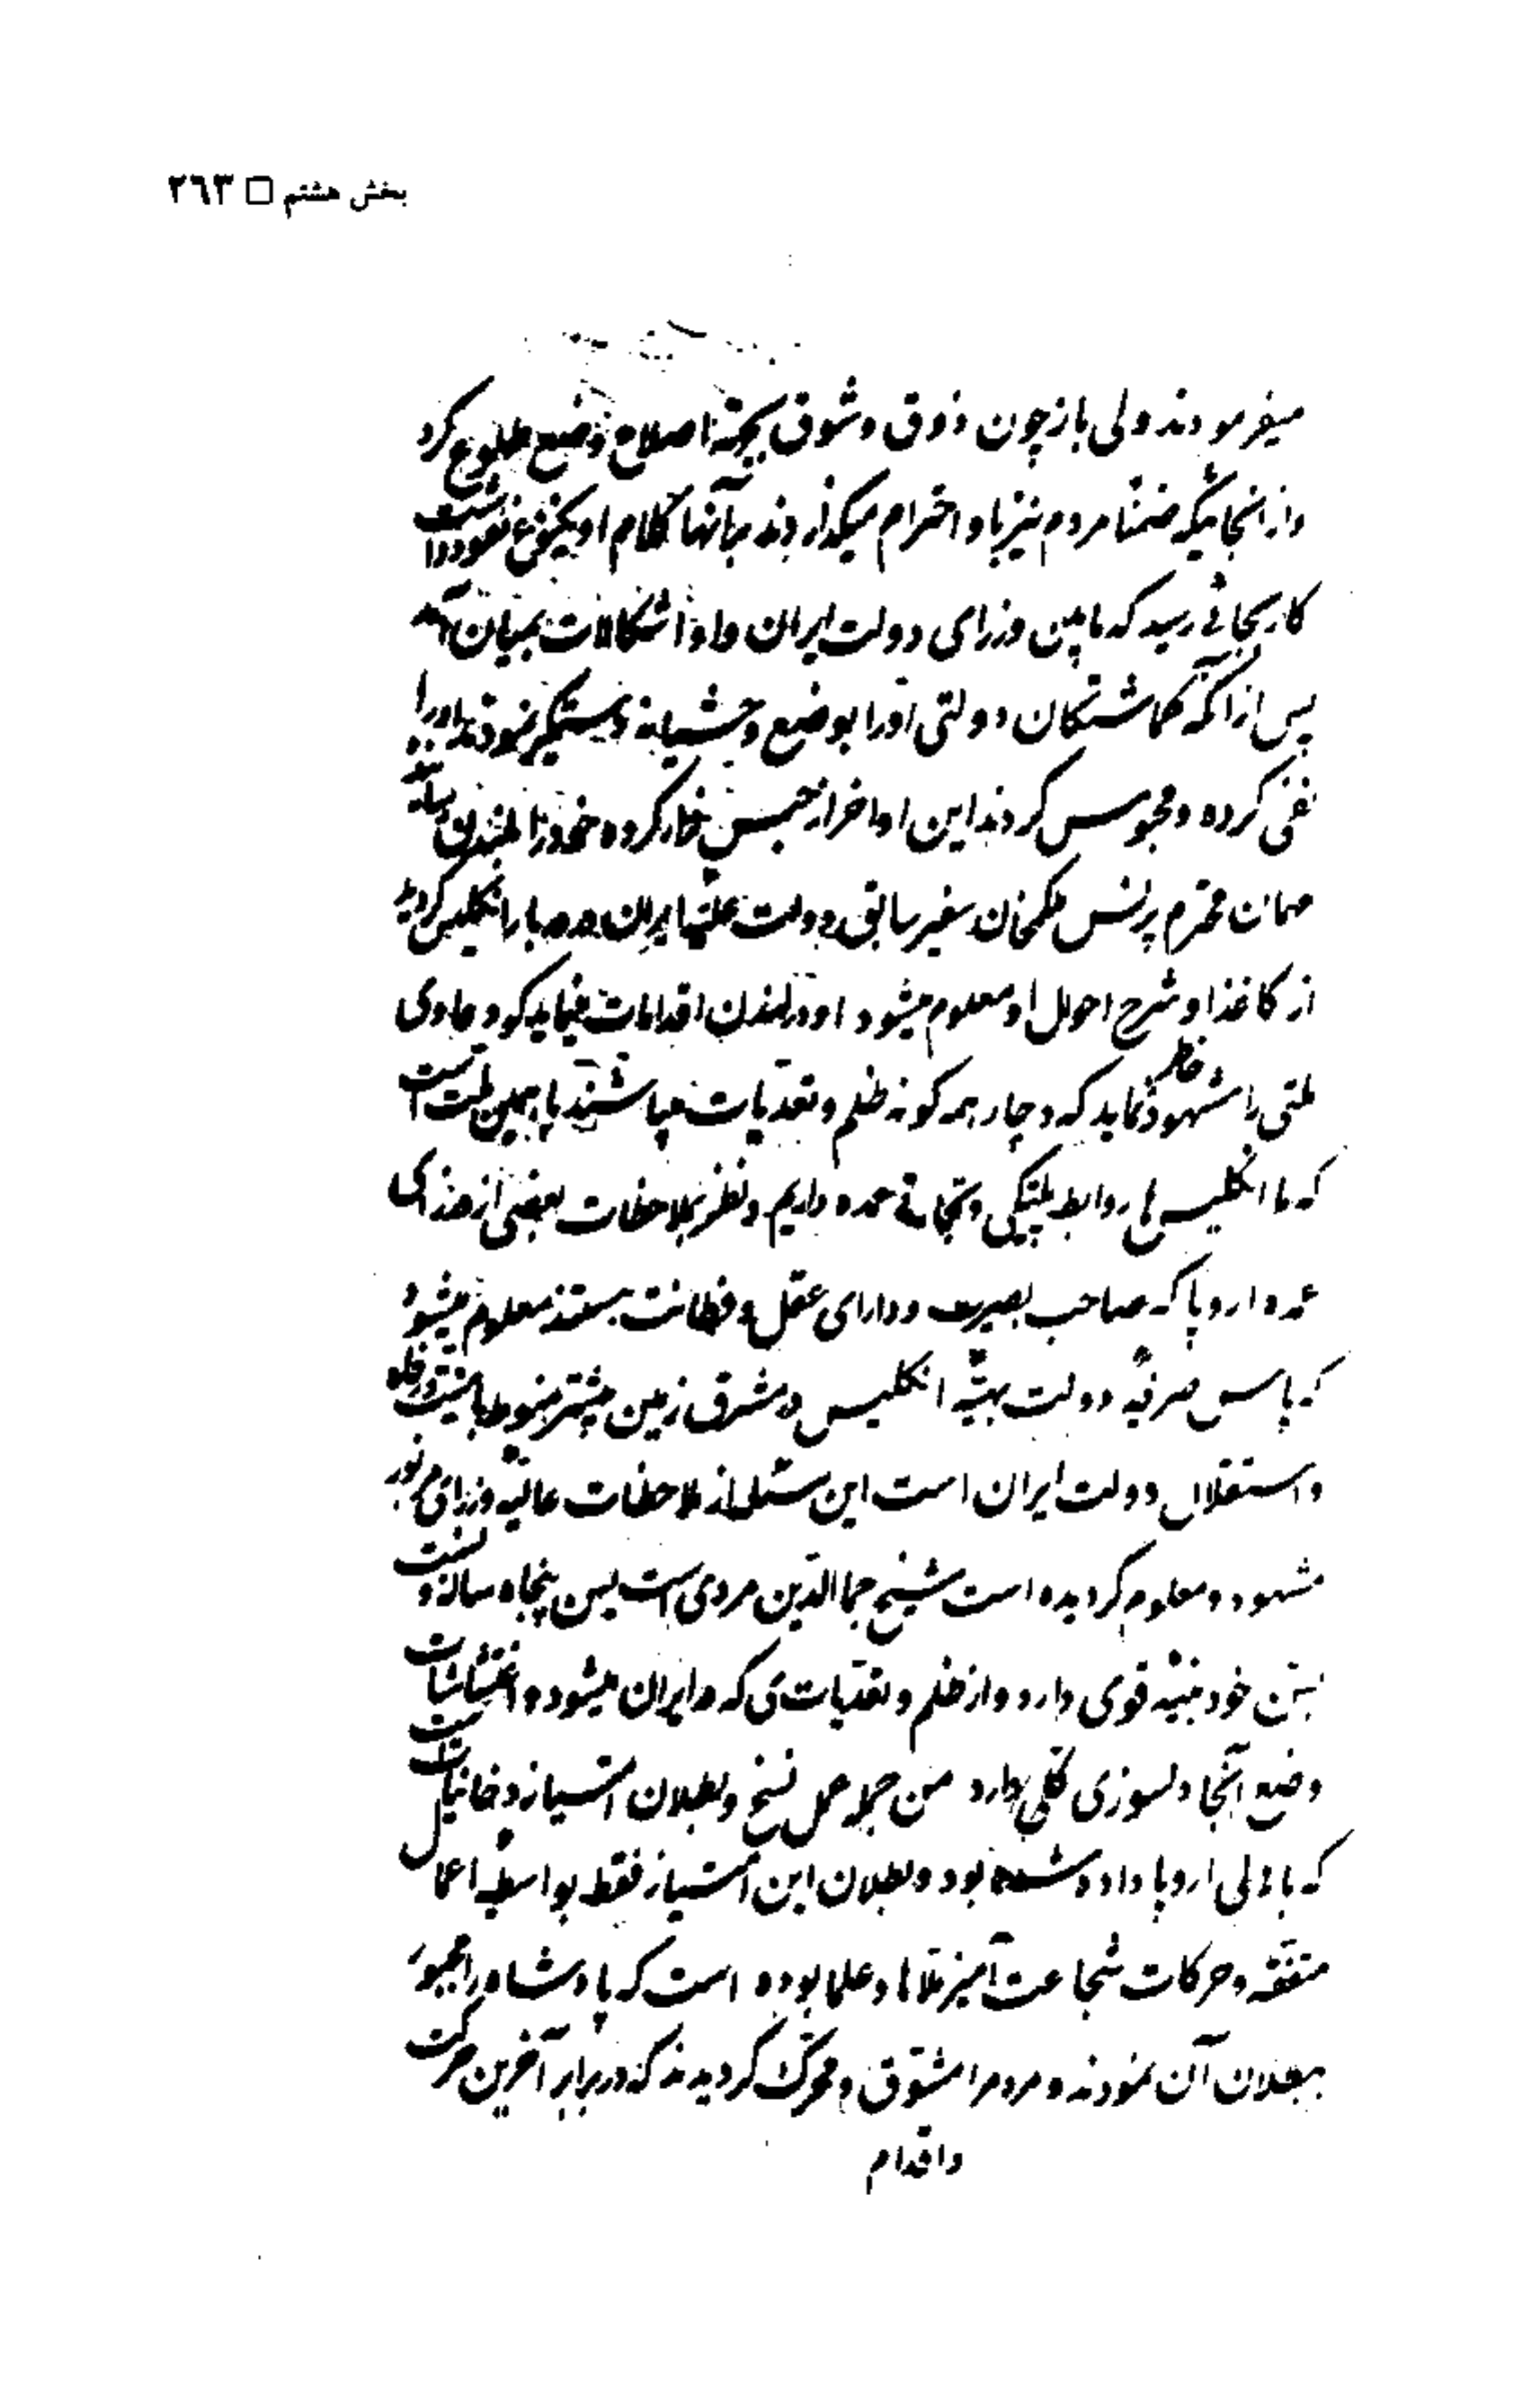 بخش هشتم □ ٢٦٣
میفرمودند ولی باز چون ذوق و شوق بجهة اصلاح وضع طلوع کرد
و از انجائیکه ضمنا مردم نیز باو احترام میگذاردند بآنها کلام او یکنوع نفوذ داشت
کار بجائی رسید که مابین وزرای دولت ایران و او اشکالات بمیان آمد
پس از آنکه گماشتگان دولتی اورا بوضع وحشیانه دستگیر نمودند اورا
نفی کرده و محبوس کردند این اواخر از حبس فرار کرده خود را بلندن رسانید
مهمان محترم پرنس ملکمخان سفیر سابق دولت علیه ایران در دربار انگلیس گردید
از کاغذ او شرح احوال او معلوم میشود او در لندن اقدامات مینماید که دعاوی
ملتی را مشهود خاطر نماید که دچار همه گونه ظلم و تعدیات میباشند با همین ملت است
که ما انگلیس‌ها روابط پلتیکی و تجارتی عمده داریم و نظر بملاحظات بعضی از وزرای
عمده اروپا که صاحب بصیرت و دارای عقل و فطانت هستند معلوم میشود
که پاس صرفه دولت بهیه انگلیس در مشرق زمین بیشتر منوط بامنیت و رفاه
و استقلال دولت ایران است این مسئله از ملاحظات عالیه وزرای مزبور
مشهود و معلوم گردیده است شیخ جمال‌الدین مردی است بسن پنجاه ساله و نسبت
بسن خود بنیه قوی دارد و از ظلم و تعدیات‌ی که در ایران میشود و اغتشاشات
وضع آنجا دلسوزی کلی دارد من جمله حل نسخ و بطلان امتیاز دخانیات است
که باهالی اروپا داده شده بود و بطلان این امتیاز فقط بواسطه اعمال
متفقه و حرکات شجاعت‌آمیز ملاها و علما بوده است که پادشاه را مجبور
ببطلان آن نمودند و مردم را مشوق و محرک گردیدند که در برابر آخرین حرکت
و اقدام